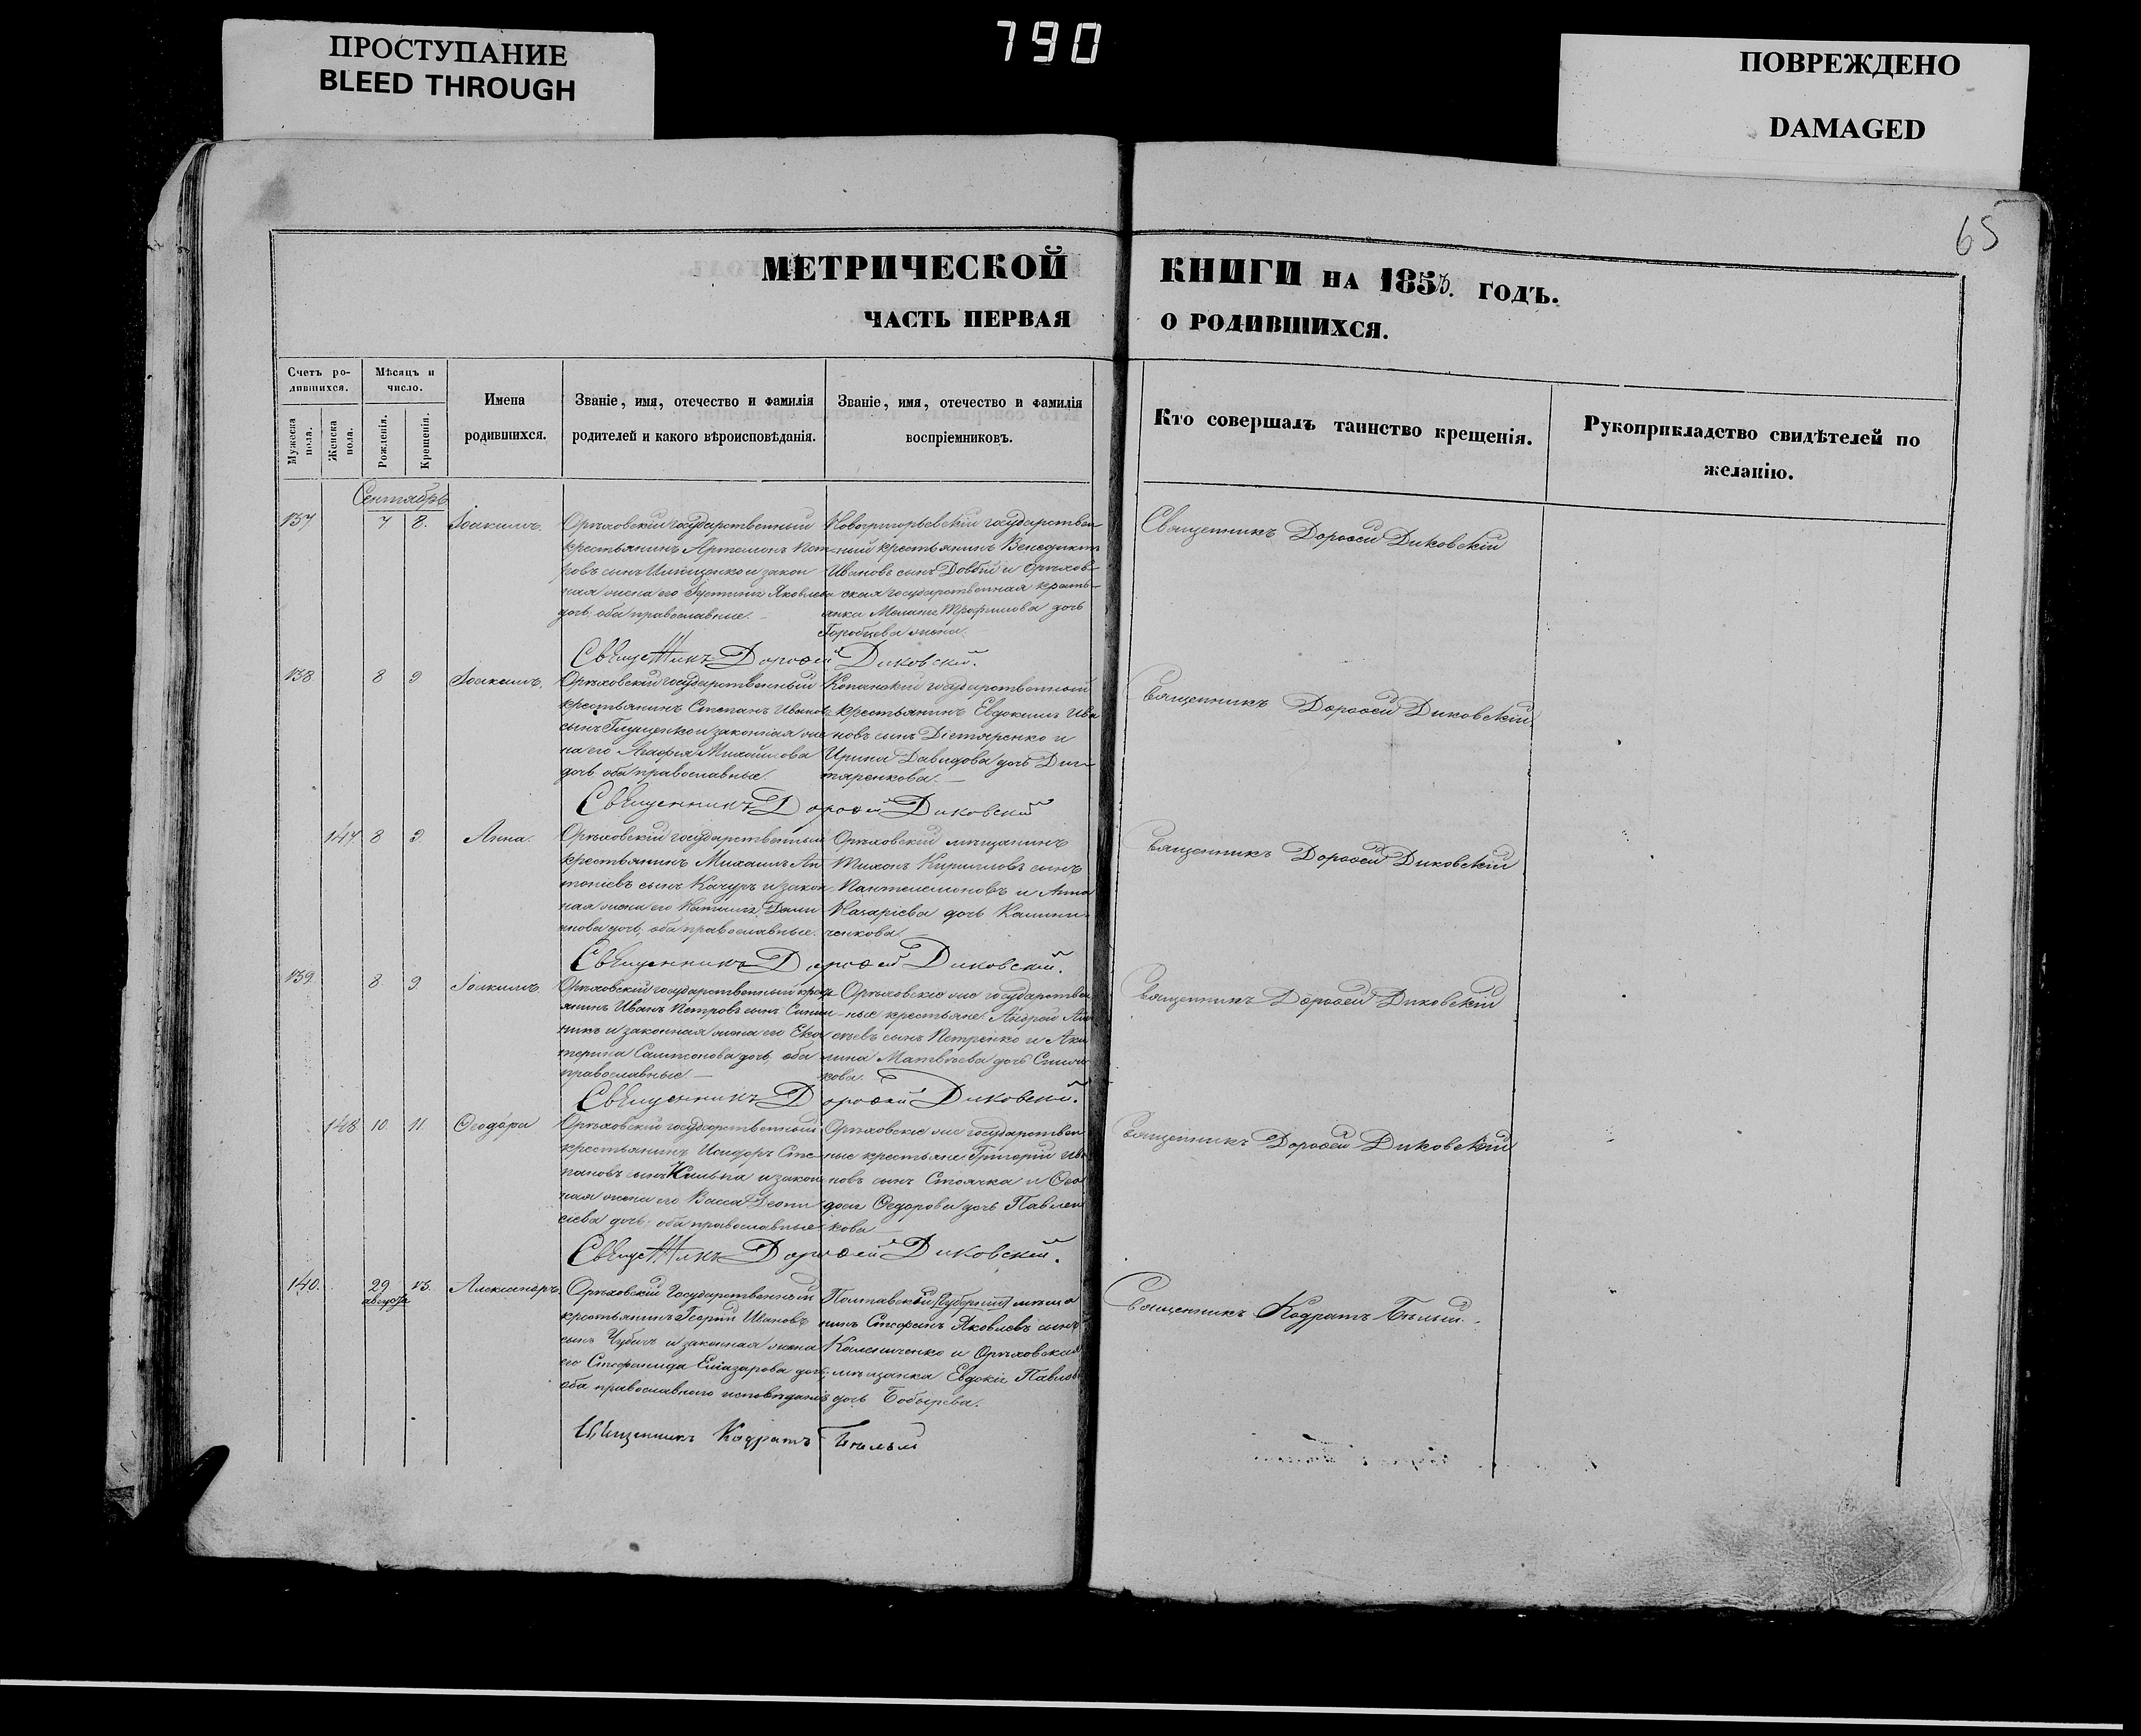 790
ПРОСТУПАНИЕ
BLEED THROUGH
ПОВРЕЖДЕНО
DAMAGED
65
МЕТРИЧЕСКОЙ КНИГИ НА 185 ГОДЪ.
ЧАСТЬ ПЕРВАЯ О РОДИВШИХСЯ.
Счетъ ро-
дившихся.
Мужеска пола.
Женска пола.
Мѣсяцъ и
число.
Рожденія.
Крещенія.
Имена
родившихся.
Званіе, имя, отечество и фамилія
родителей и какого вѣроисповѣданія.
Званіе, имя, отечество и фамилія
воспріемниковъ.
Кто совершалъ таинство крещенія.
Рукоприкладство свидѣтелей по
желанію.
Сентябрь
137 7 8. Іоакимъ.
Орѣховскій государственный
крестьянинъ Артемонъ Пет-
ровъ сынъ и закон
ная жена его Яковлева
дочь, оба православные.
Новогригорьевскій государствен
ный крестьянинъ Венедиктъ
Ивановъ сынъ Довбій и Орѣхов-
ская государственная кресть-
янка Трофимова дочь
Горобцева жена.
Священникъ Дорофей Диковскій
Священникъ Дорофей Диковскій.
138 8 9 Іоакимъ.
Орѣховскій государственный
крестьянинъ Степанъ Ивановъ
сынъ и законная же
на его Агафія Михайлова
дочь оба православные.
Копанскій государственный
крестьянинъ Евдокимъ Ива
новъ сынъ и
Ирина Давидова дочь
Священникъ Дорофей Диковскій.
Священникъ Дорофей Диковскій
147 8 9. Анна.
Орѣховскій государственный
крестьянинъ Михаилъ Ан
тоніевъ сынъ Качуръ и закон
ная жена его
дочь, оба православные.
Орѣховскій мѣщанинъ
Тихонъ Кирилловъ сынъ
Пантелемоновъ и Анна
Назаріева дочь Калини-
ченкова.
Священникъ Дорофей Диковскій
Священникъ Дорофей Диковскій.
139 8 9 Іоакимъ.
Орѣховскій государственный крест
янинъ Иванъ Петровъ сынъ
и законная жена его Ека
терина дочь, оба
православные.
Орѣховскіе же государствен
ные крестьяне: Андрей
сынъ Петренко и Аку
лина Матвѣева дочь
кова.
Священникъ Дорофей Диковскій
Священникъ Дорофей Диковскій.
148 10 11. Ѳеодора
Орѣховскій государственный
крестьянинъ Исидоръ Сте-
пановъ сынъ и закон
ная жена его Васса
дочь, оба православные
Орѣховскіе же государствен
ные крестьяне: Григорій Ива
новъ сынъ и Ѳео
досія Ѳедорова дочь Павлен
кова
Священникъ Дорофей Диковскій
Священникъ Дорофей Диковскій.
140. 29 августа 13. Александръ
Орѣховскій Государственный
крестьянинъ Георгій Ивановъ
сынъ и законная жена
его Стефанида Елиазарова дочь,
оба православнаго исповѣданія
Полтавской Губерніи мѣща
нинъ Стефанъ Яковлевъ сынъ
Калениченко и Орѣховская
мѣщанка Евдокія Павлова
дочь Бобырева.
Священникъ Кодратъ Бѣлый.
Священникъ Кодратъ Бѣлый